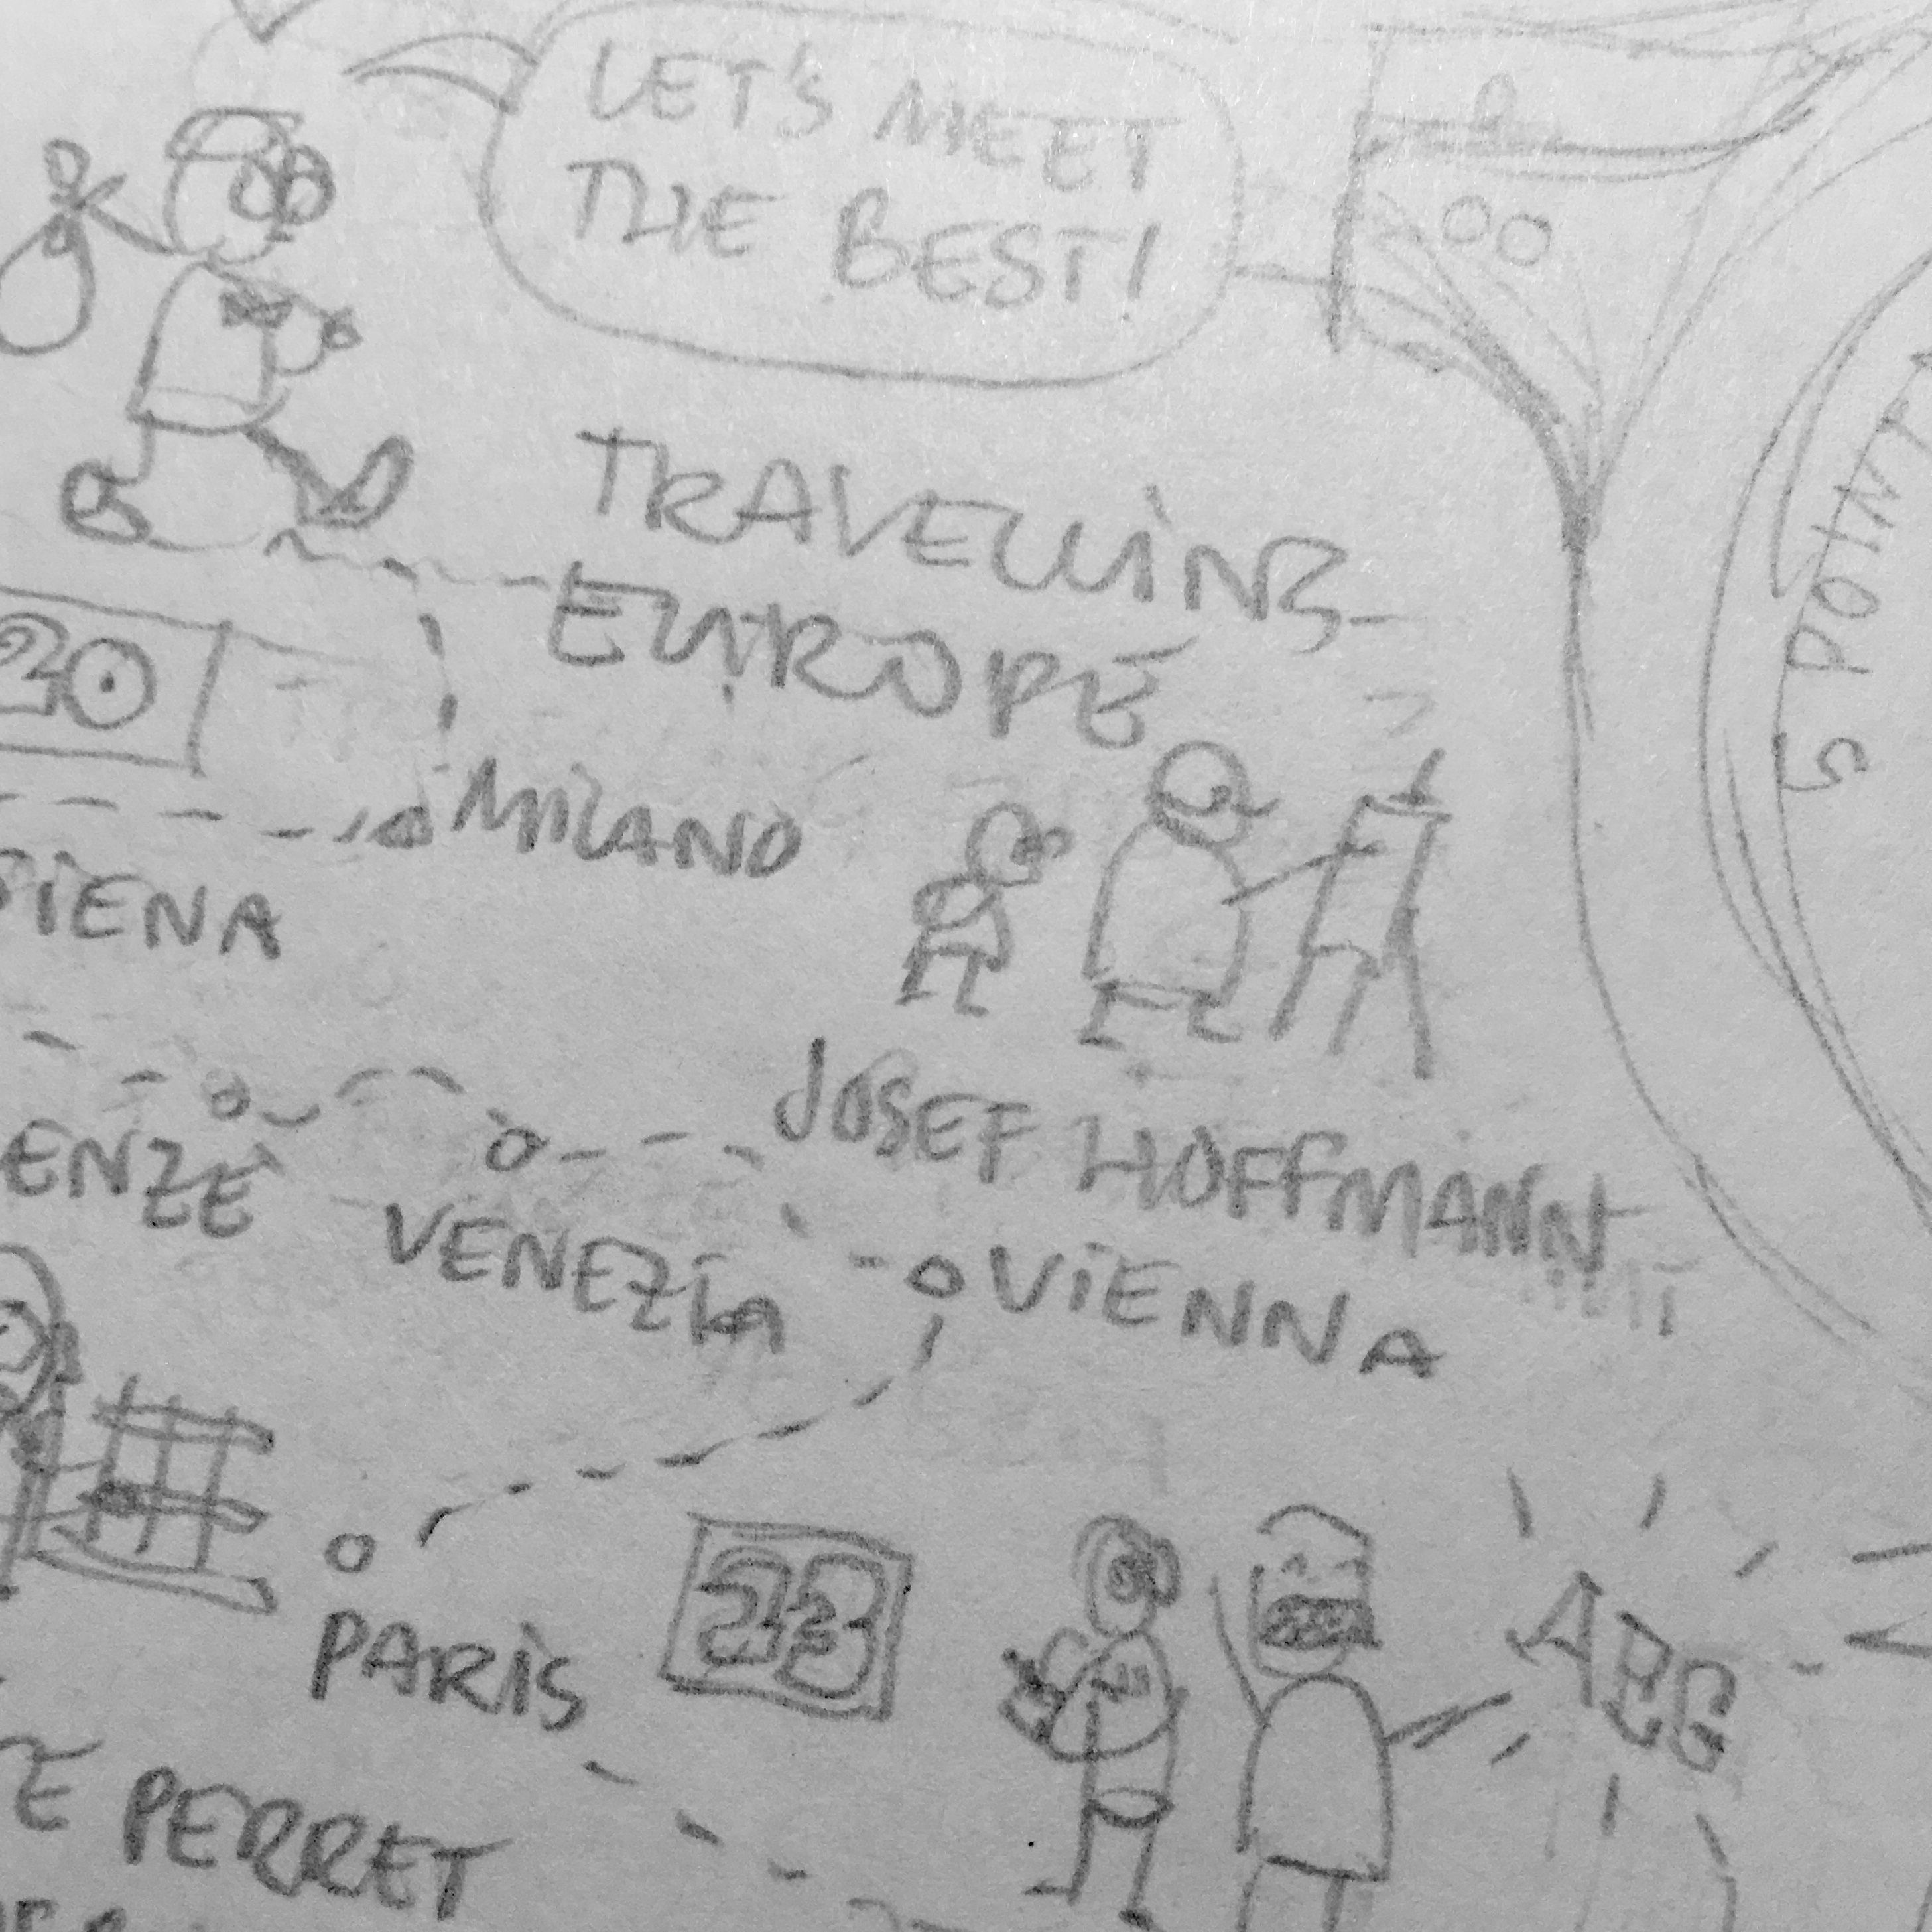 LET'S MEET
THE BEST!
TRAVELLING
EUROPE
20
5 POINT
MILANO
SIENA
JOSEF HOFFMANN
ENZE
VENEZIA
VIENNA
PARIS
23
AEG
PERRET